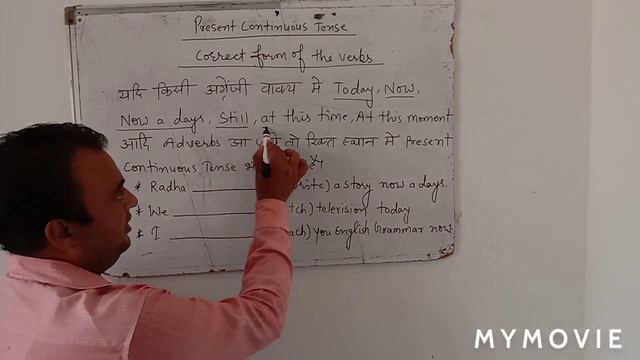 Present Continuous Tense
Correct form of the verbs
यदि किसी अग्रेंजी वाक्य मे Today, Now,
Now a days, Still, at this time, At this moment
आदि Adverbs आ तो रिक्त स्थान मे Present
Continuous Tense है।
* Radha ________ rite) a story now a days.
* We ________ tch) television today.
* I ________ ach) you English Grammar now
MYMOVIE